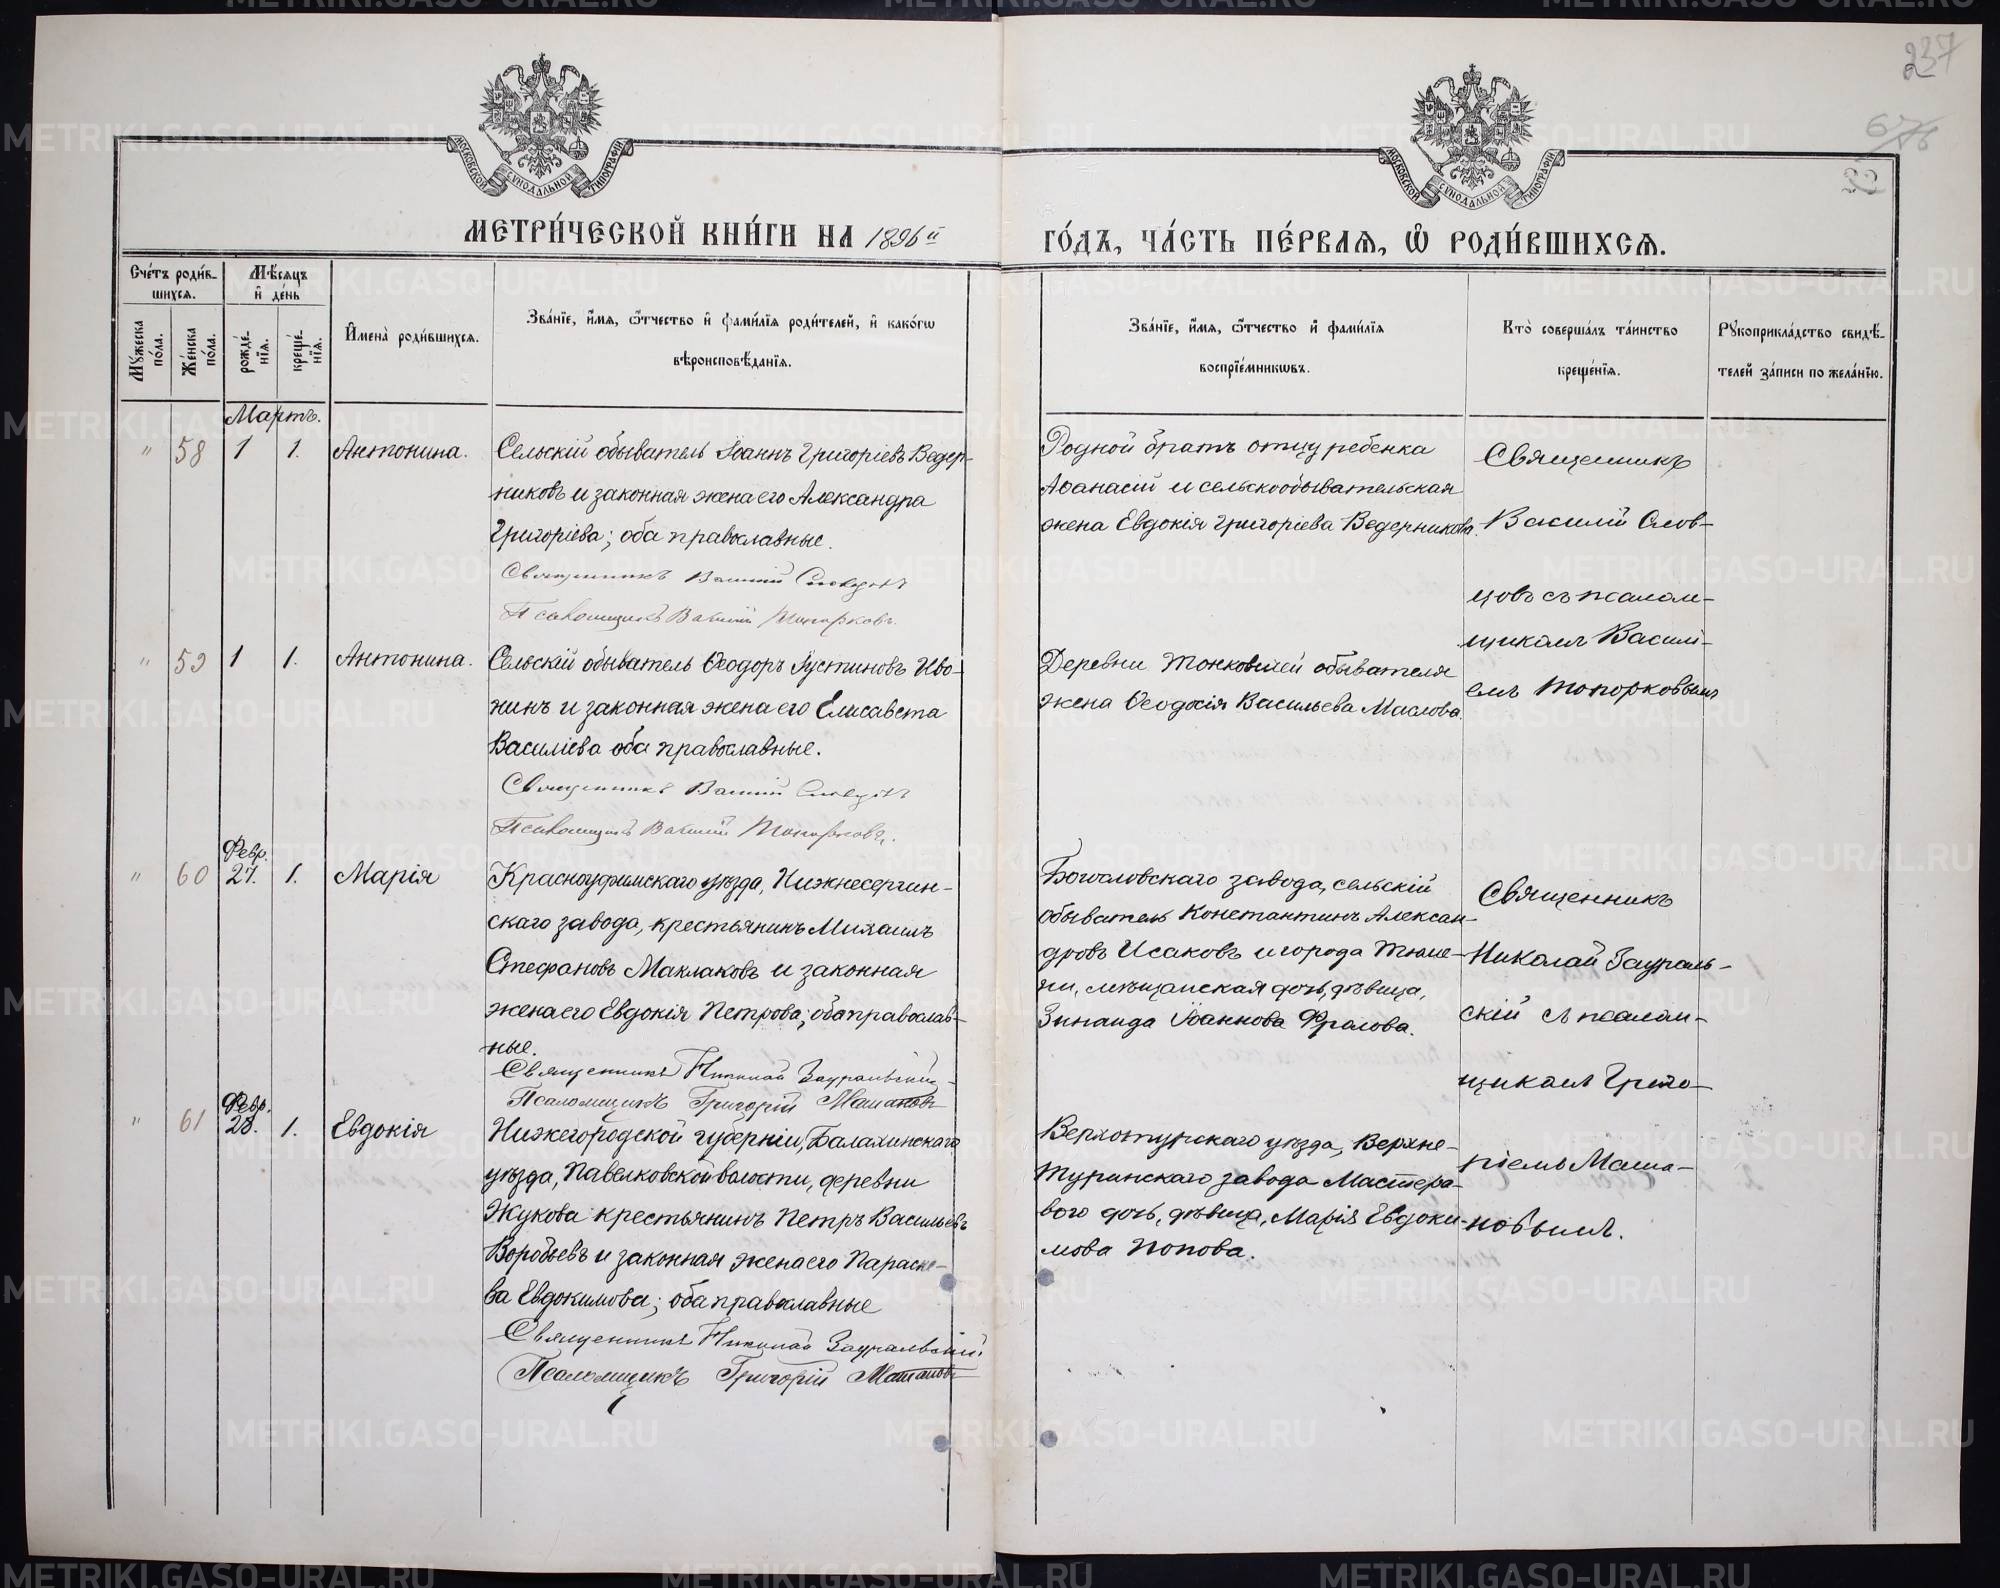 237
67/78
22
МОСКОВСКОЙ СѴНОДАЛЬНОЙ ТИПОГРАФІИ
МОСКОВСКОЙ СѴНОДАЛЬНОЙ ТИПОГРАФІИ
МЕТРИ́ЧЕСКОЙ КНИ́ГИ НА 1896й
ГО́ДЪ, ЧА́СТЬ ПЕ́РВАѦ, Ѡ҆ РОДИ́ВШИХСѦ.
Сче́тъ роди́в-
шихсѧ.
Мѣ́сѧцъ
и҆ де́нь
Мꙋ́жеска
по́ла.
Же́нска
по́ла.
рожде́-
нїѧ.
креще́-
нїѧ.
И҆мена̀ роди́вшихсѧ.
Зва́нїе, и҆́мѧ, ѻ҆́тчество и҆ фами́лїѧ роди́телей, и҆ како́гѡ
вѣроисповѣ́данїѧ.
Зва́нїе, и҆́мѧ, ѻ҆́тчество и҆ фами́лїѧ
воспрїе́мникѡвъ.
Кто̀ соверша́лъ та́инство
креще́нїѧ.
Рꙋкоприкла́дство свидѣ́-
телей за́писи по жела́нїю.
Мартъ.
" 58 1 1. Антонина.
Сельскій обыватель Іоаннъ Григоріевъ Ведер-
никовъ и законная жена его Александра
Григоріева; оба православные.
Священникъ Василій Словцовъ
Псаломщикъ Василій Топорковъ.
Родной братъ отцу ребенка
Аѳанасій и сельскообывательская
жена Евдокія Григоріева Ведерникова.
Священникъ
Василій Слов-
цовъ съ псалом-
щикомъ Васили-
емъ Топорковымъ
" 59 1 1. Антонина.
Сельскій обыватель Ѳеодоръ Іустиновъ Иво-
нинъ и законная жена его Елисавета
Василіева оба православные.
Священникъ Василій Словцовъ
Псаломщикъ Василій Топорковъ.
Деревни Тонковшей обывателя
жена Ѳеодосія Васильева Маслова.
Февр.
" 60 27. 1. Марія
Красноуфимскаго уѣзда, Нижнесергин-
скаго завода, крестьянинъ Михаилъ
Стефановъ Маклаковъ и законная
жена его Евдокія Петрова; оба православ-
ные.
Священникъ Николай Зауральскій
Псаломщикъ Григорій Машановъ
Богословскаго завода, сельскій
обыватель Константинъ Алексан-
дровъ Исаковъ и города Тюме-
ни, мѣщанская дочь, дѣвица,
Зинаида Іоаннова Фролова.
Священникъ
Николай Заураль-
скій съ псалом-
щикомъ Григо-
ріемъ Маша-
новымъ.
Февр.
" 61 28. 1. Евдокія
Нижегородской губерніи, Балахинскаго
уѣзда, Павелковской волости, деревни
Жукова крестьянинъ Петръ Васильевъ
Воробьевъ и законная жена его Параске-
ва Евдокимова; оба православные
Священникъ Николай Зауральскій
Псаломщикъ Григорій Машановъ
Верхотурскаго уѣзда, Верхне-
Туринскаго завода Мастеро-
вого дочь, дѣвица, Марія Евдоки-
мова Попова.